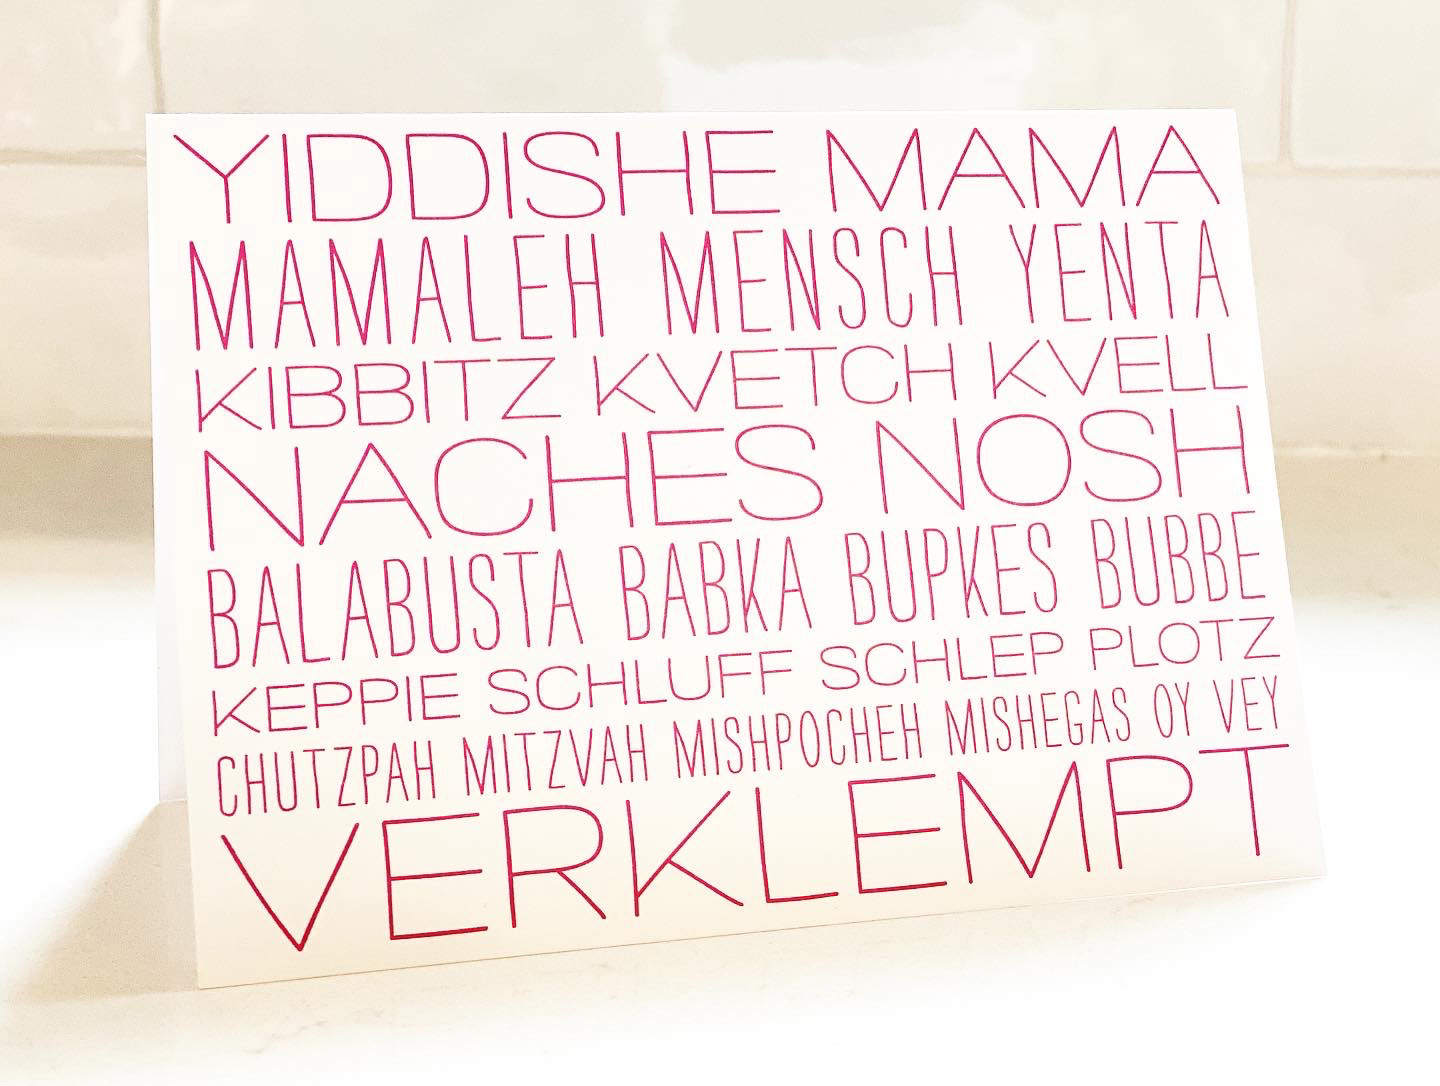 YIDDISHE MAMA
MAMALEH MENSCH YENTA
KIBBITZ KVETCH KVELL
NACHES NOSH
BALABUSTA BABKA BUPKES BUBBE
KEPPIE SCHLUFF SCHLEP PLOTZ
CHUTZPAH MITZVAH MISHPOCHEH MISHEGAS OY VEY
VERKLEMPT